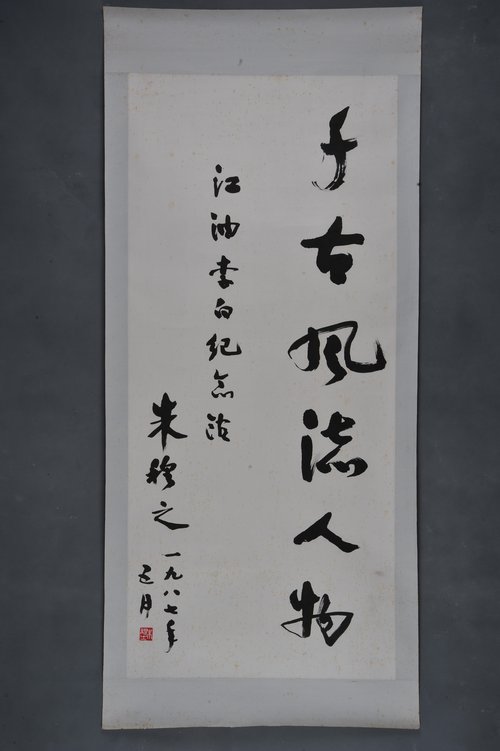 千古风流人物
江油李白纪念馆
朱穆之
一九八七年
五月